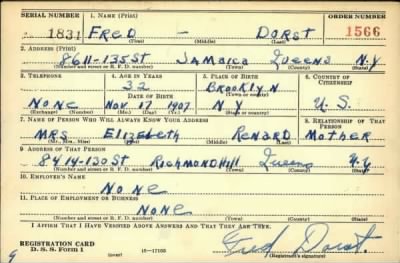 SERIAL NUMBER 1. NAME (Print) ORDER NUMBER
1831 FRED — DORST 1566
(First) (Middle) (Last)
2. ADDRESS (Print)
8611-135 St JAMAICA QUEENS N.Y
(Number and street or R. F. D. number) (Town) (County) (State)
3. TELEPHONE 4. AGE IN YEARS 5. PLACE OF BIRTH 6. COUNTRY OF CITIZENSHIP
32 BROOKLYN
DATE OF BIRTH (Town or county)
NONE Nov 17 1907 N Y U. S.
(Exchange) (Number) (Mo.) (Day) (Yr.) (State or country)
7. NAME OF PERSON WHO WILL ALWAYS KNOW YOUR ADDRESS 8. RELATIONSHIP OF THAT PERSON
MRS ELIZEBETH RENARD MOTHER
(Mr., Mrs., Miss) (First) (Middle) (Last)
9. ADDRESS OF THAT PERSON
8414-130 St RICHMOND Hill Queens N.Y
(Number and street or R. F. D. number) (Town) (County) (State)
10. EMPLOYER'S NAME
NONE
11. PLACE OF EMPLOYMENT OR BUSINESS
NONE
(Number and street or R. F. D. number) (Town) (County) (State)
I AFFIRM THAT I HAVE VERIFIED ABOVE ANSWERS AND THAT THEY ARE TRUE.
REGISTRATION CARD
D. S. S. Form 1 (over) 16—17105 Fred Dorst.
(Registrant's signature)